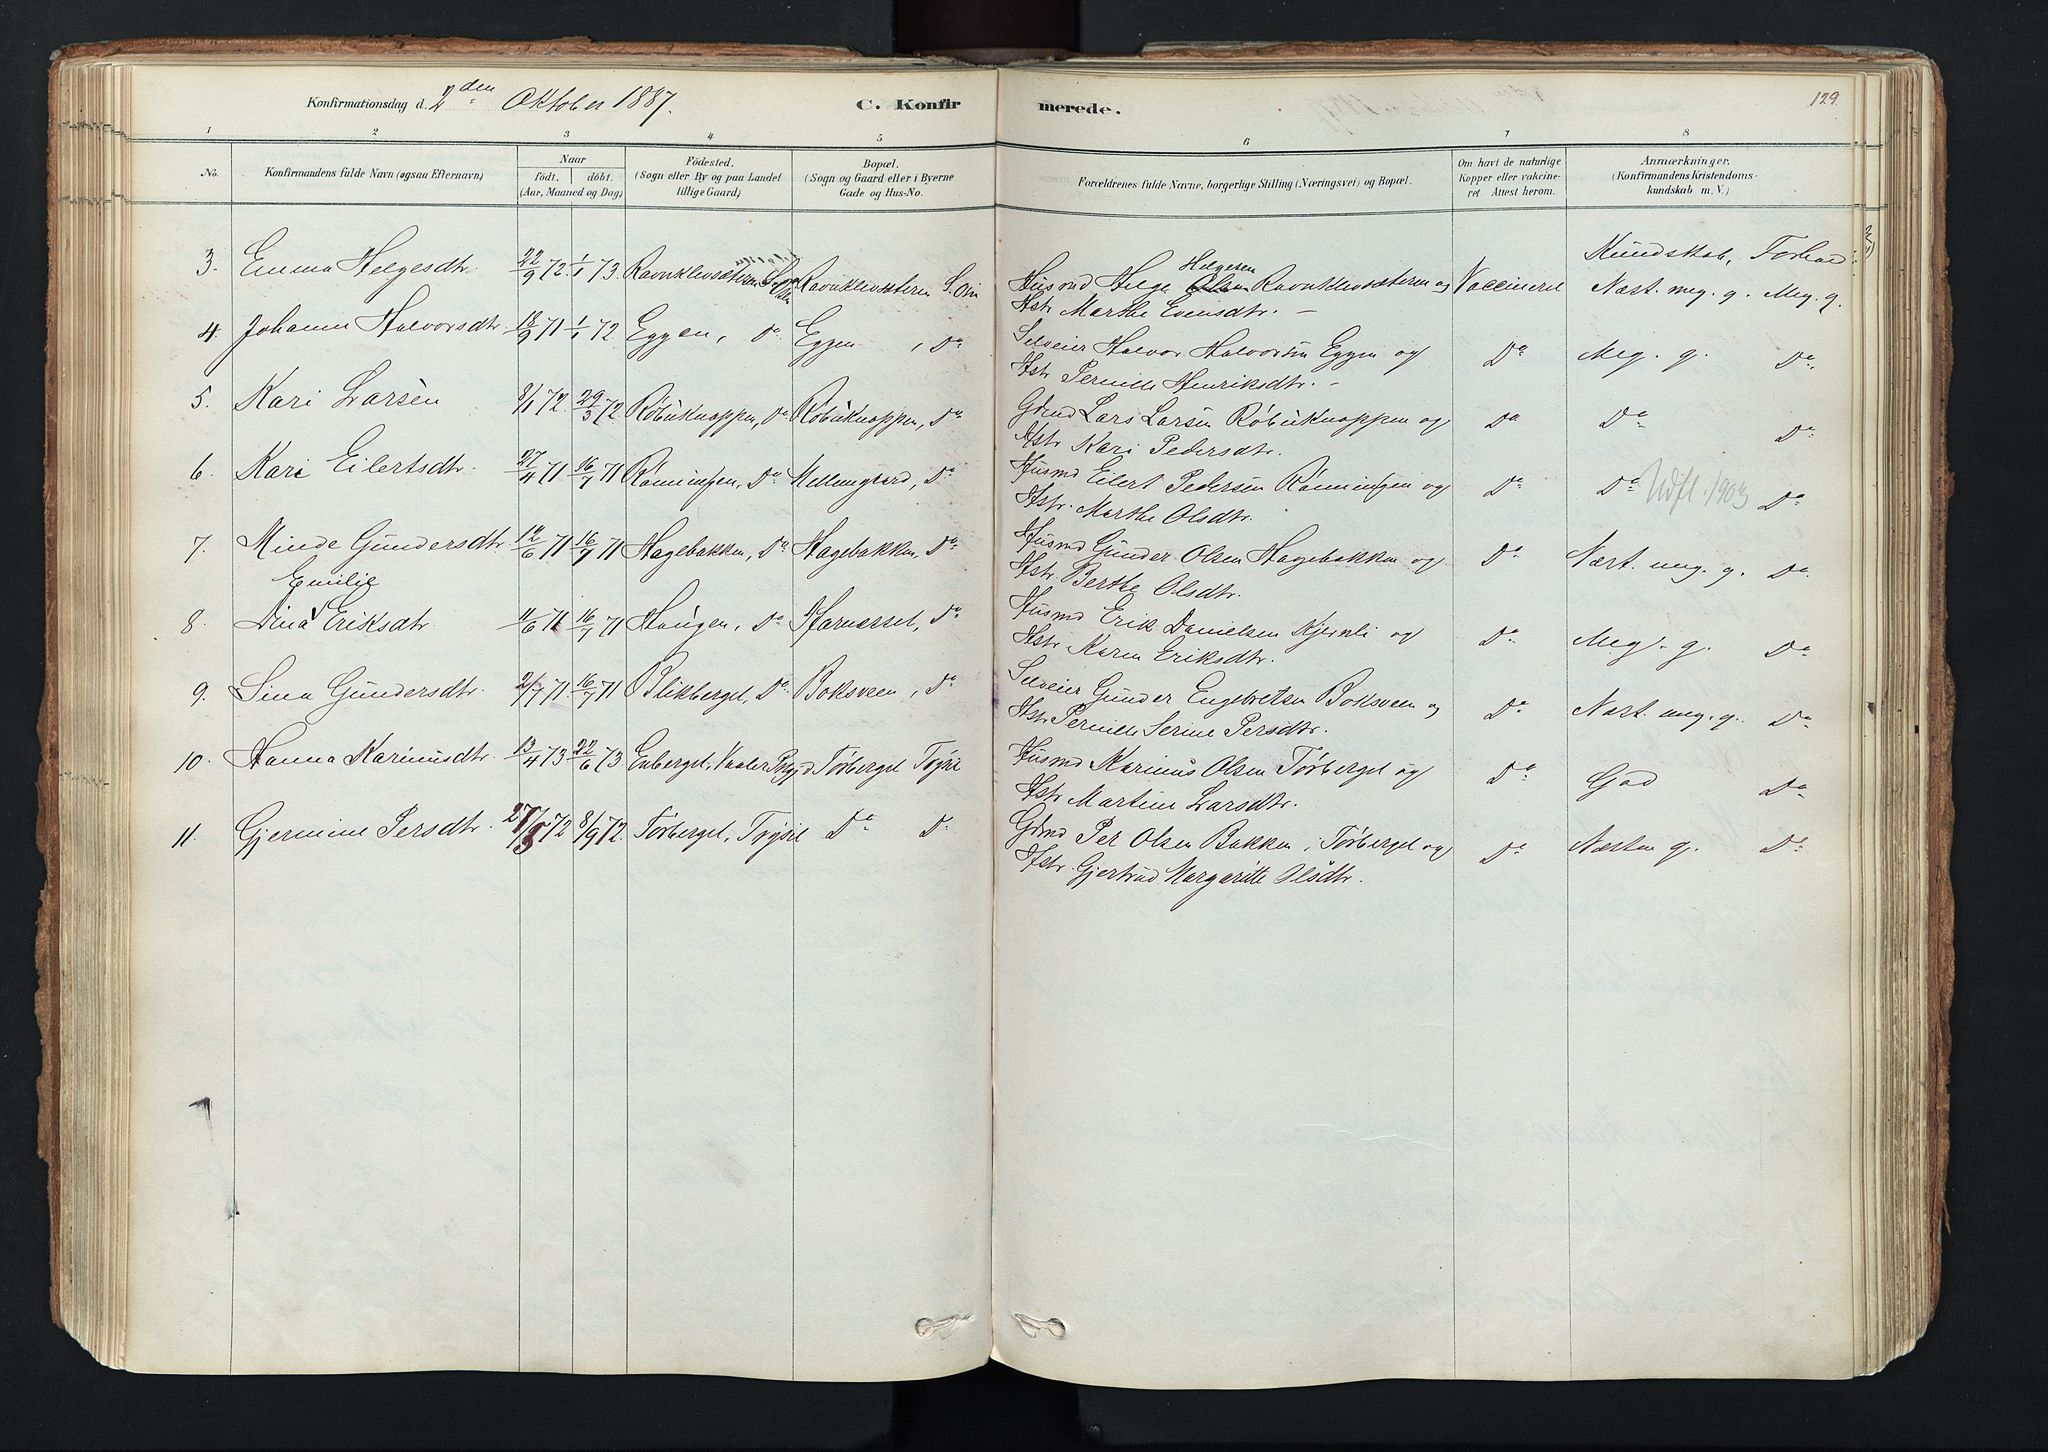 Konfirmationsdag d. 2den Oktober 1887. C. Konfirmerede. 129.
1 2 3 4 5 6 7 8
No. Konfirmandens fulde Navn (ogsaa Efternavn) Naar Födt. döbt. (Aar, Maaned og Dag) Födested. (Sogn eller By og paa Landet tillige Gaard) Bopæl. (Sogn og Gaard eller i Byerne Gade og Hus-No. Forældrenes fulde Navne, borgerlige Stilling (Næringsvei) og Bopæl. Om havt de naturlige Kopper eller vaccineret Attest herom. Anmærkninger. (Konfirmandens Kristendomskundskab m. V.)
Kundskab, Forhold
3. Emma Helgesdtr. 22/9 72. 1/1 73. Ravnklevsæteren Ravnklevsæteren Husmd Helge Olsen Helgesen Ravnklevsæteren og Vaccineret Næst. meg. g. Meg. g.
Hstr Marthe Evensdtr. –
4. Johanne Halvorsdtr. 18/9 71 1/1 72. Eggen, Do Eggen, Do Selveier Halvor Halvorsen Eggen og Do Meg. g. Do
Hstr Pernille Henriksdtr. –
5. Kari Larsen 8/1 72. 29/3 72 Röbuknappen, Do Röbuknappen, Do Gbrmd Lars Larsen Röbuknappen og Do Do Do
Hstr Kari Pedersdtr.
6. Kari Eilertsdtr. 27/4 71 16/7 71 Rönningen, Do Mellemgaard, Do Husmd Eilert Pedersen Rönningen og Do Do Udfl. 1903 Do
Hstr. Marthe Olsdtr.
7. Minde Gundersdtr 12/6 71 16/7 71 Hagebakken, Do Hagebakken, Do Husmd Gunder Olsen Hagebakken og Do Næst. meg. g. Do
Hstr Berthe Olsdtr.
Emilie
8. Dina Eriksdtr. 11/6 71 16/7 71 Haugen, Do Do Husmd Erik Danielsen Kjernli og Do Meg. g. Do
Hstr Karen Eriksdtr.
9. Lina Gundersdtr. 2/7 71 16/7 71 Blikberget, Do Boksveen, Do Selveier Gunder Engebretsen Boksveen og Do Næst. meg. g. Do
Hstr Pernille Serine Persdtr.
10. Hanna Karinusdtr. 13/4 73 22/6 73 Enberget, Vaaler Prgjd Törberget Trysil Husmd Karinus Olsen Törberget og Do God Do
Hstr Martine Larsdtr.
11. Gjermine Persdtr. 27/5 72 8/9 72. Törberget, Trysil Do Do Gbrmd Per Olsen Bakken, Törberget og Do Næsten g. Do
Hstr. Gjertrud Margaritte Olsdtr.